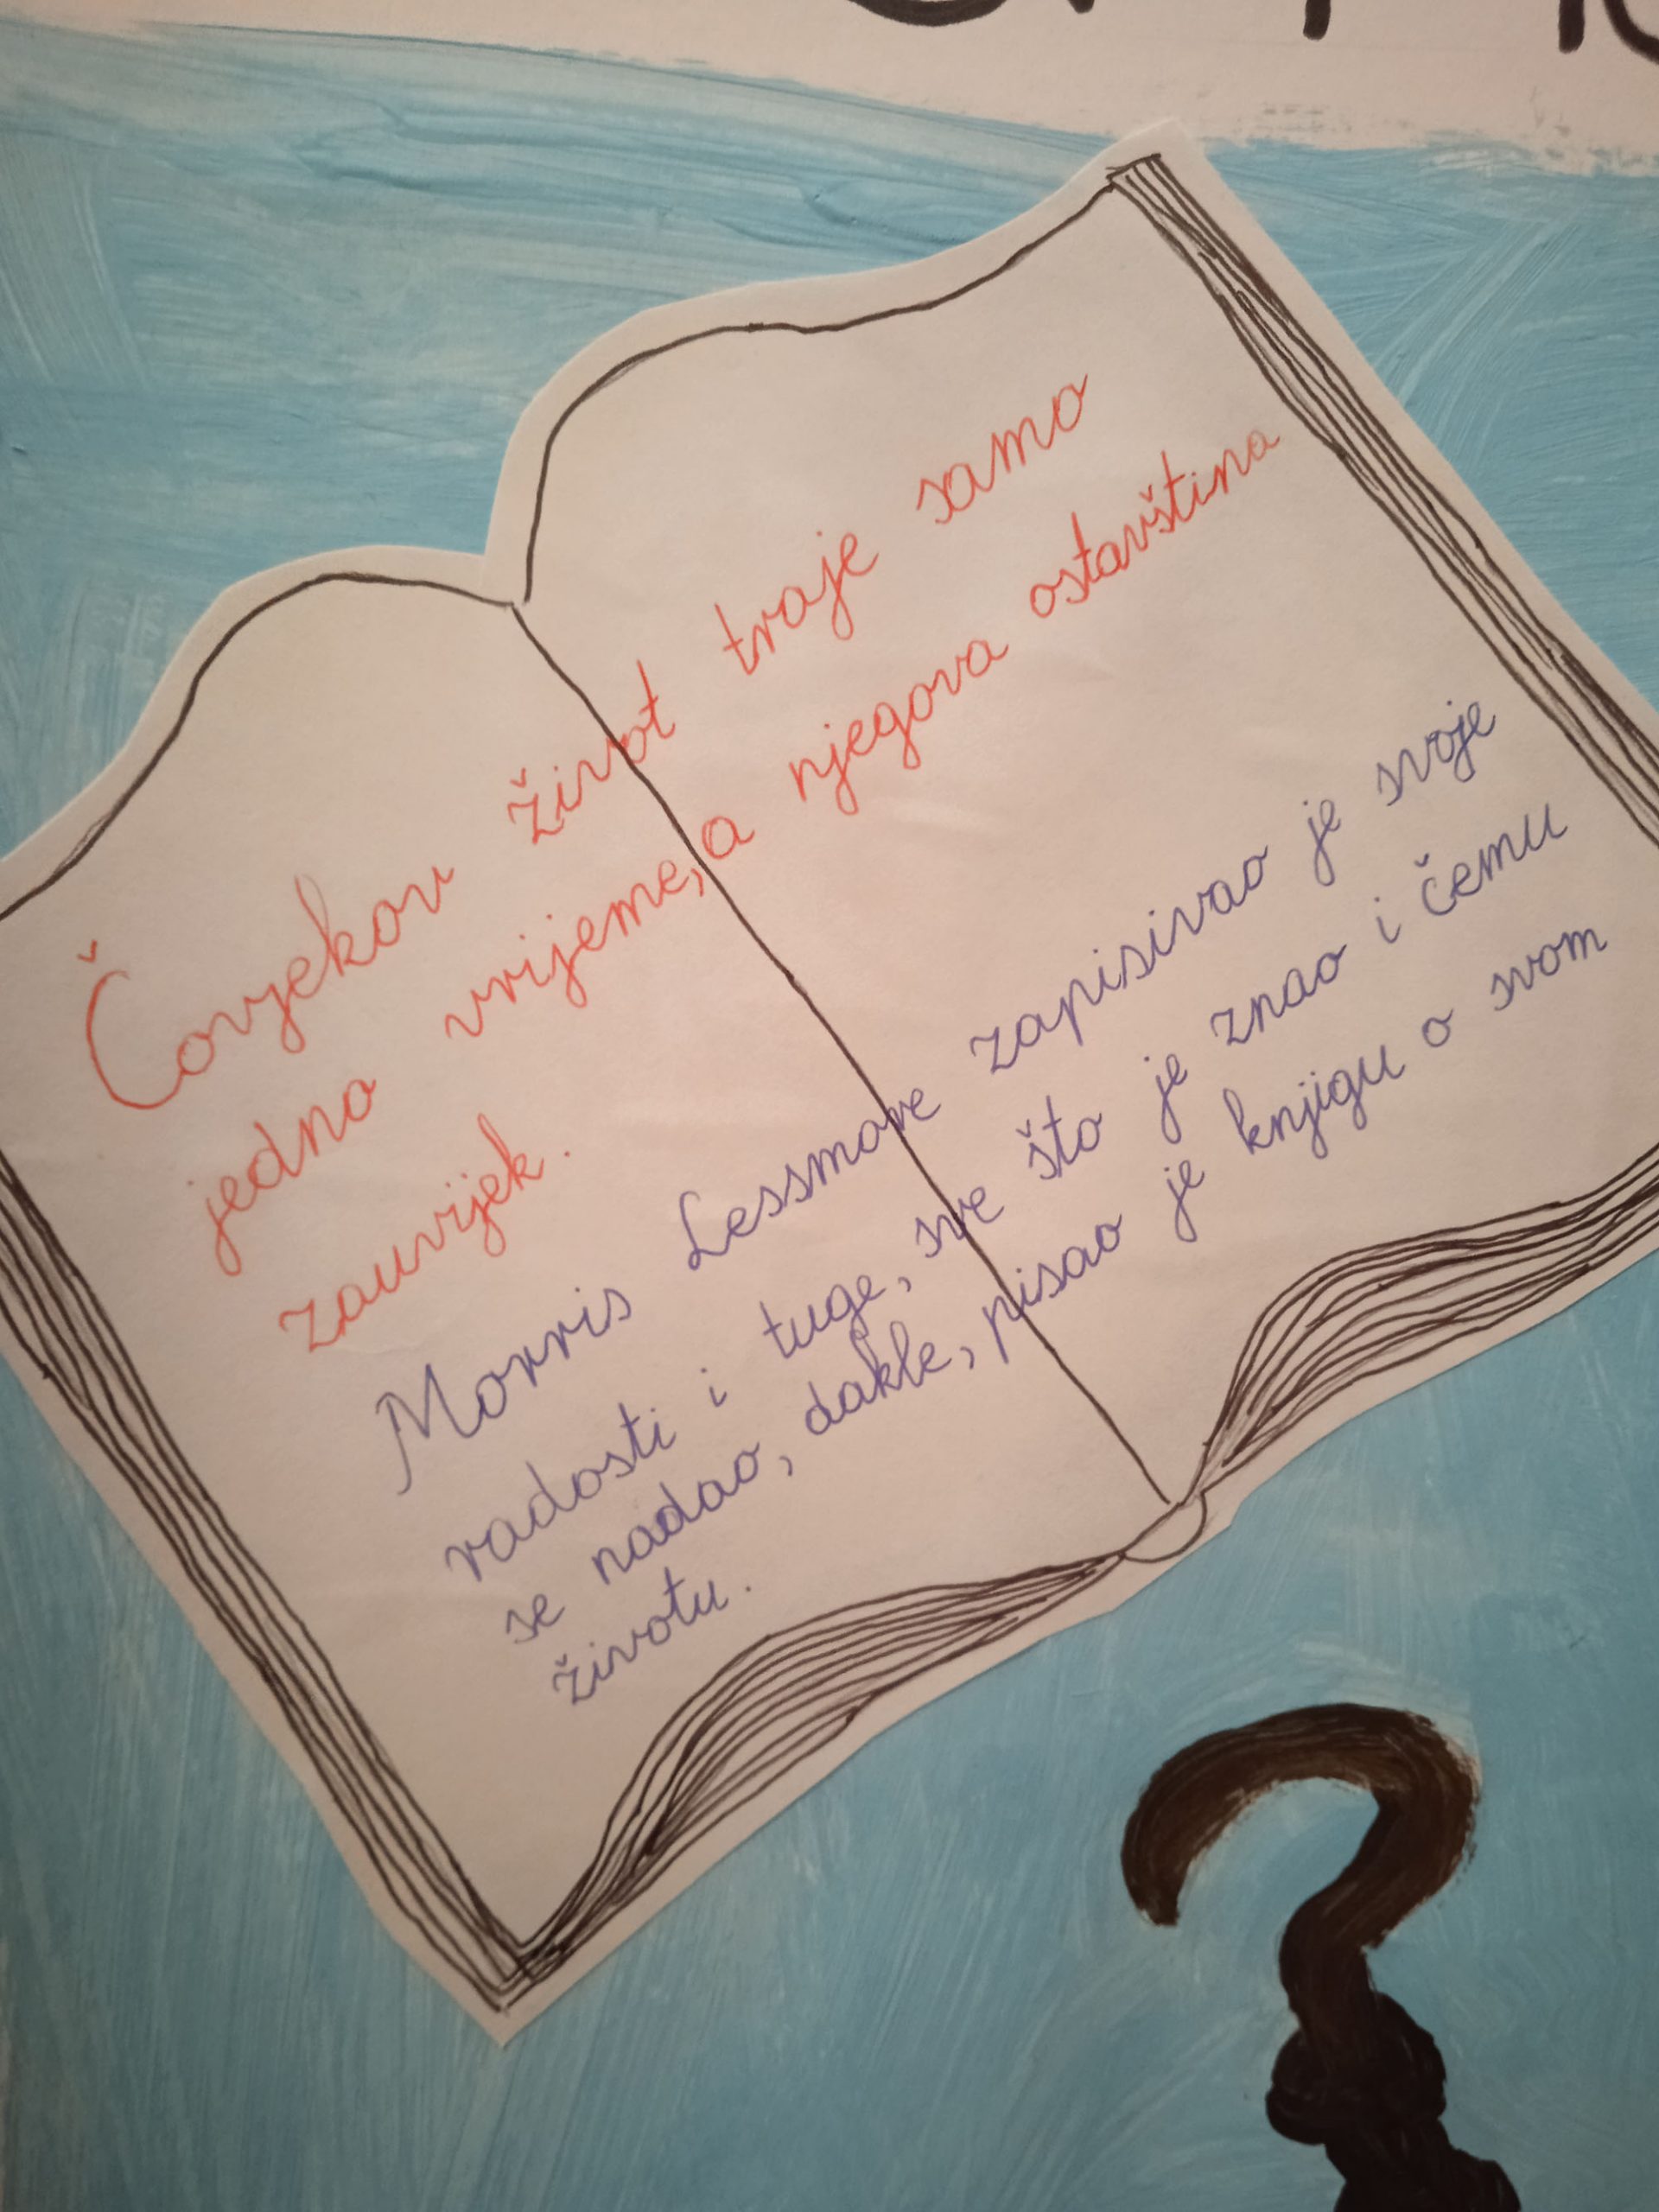 Čovjekov život traje samo
jedno vrijeme, a njegova ostavština
zauvijek.
Morris Lessmore zapisivao je svoje
radosti i tuge, sve što je znao i čemu
se nadao, dakle, pisao je knjigu o svom
životu.